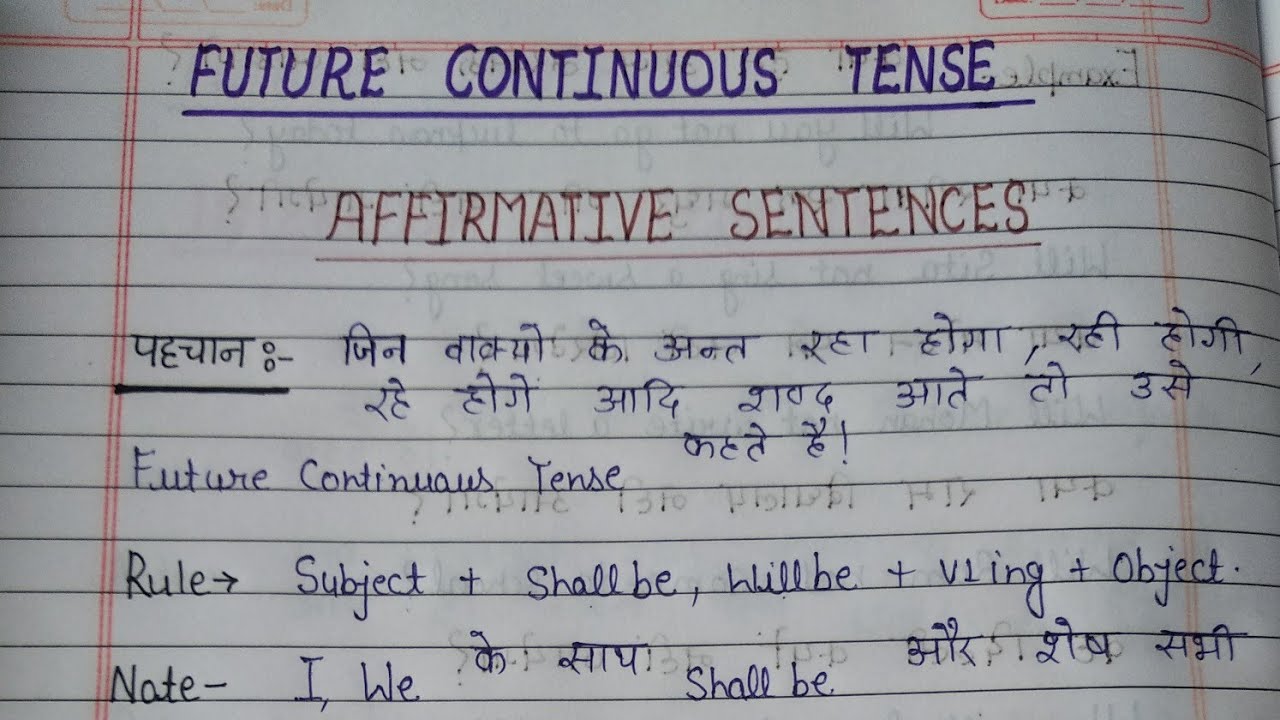 FUTURE CONTINUOUS TENSE
AFFIRMATIVE SENTENCES
पहचान :- जिन वाक्यो के अन्त रहा होगा, रही होगी,
रहे होगें आदि शब्द आते तो उसे
Future Continuous Tense कहते है!
Rule→ Subject + Shall be, Will be + V1 ing + Object.
Note- I, We के साथ Shall be और शेष सभी